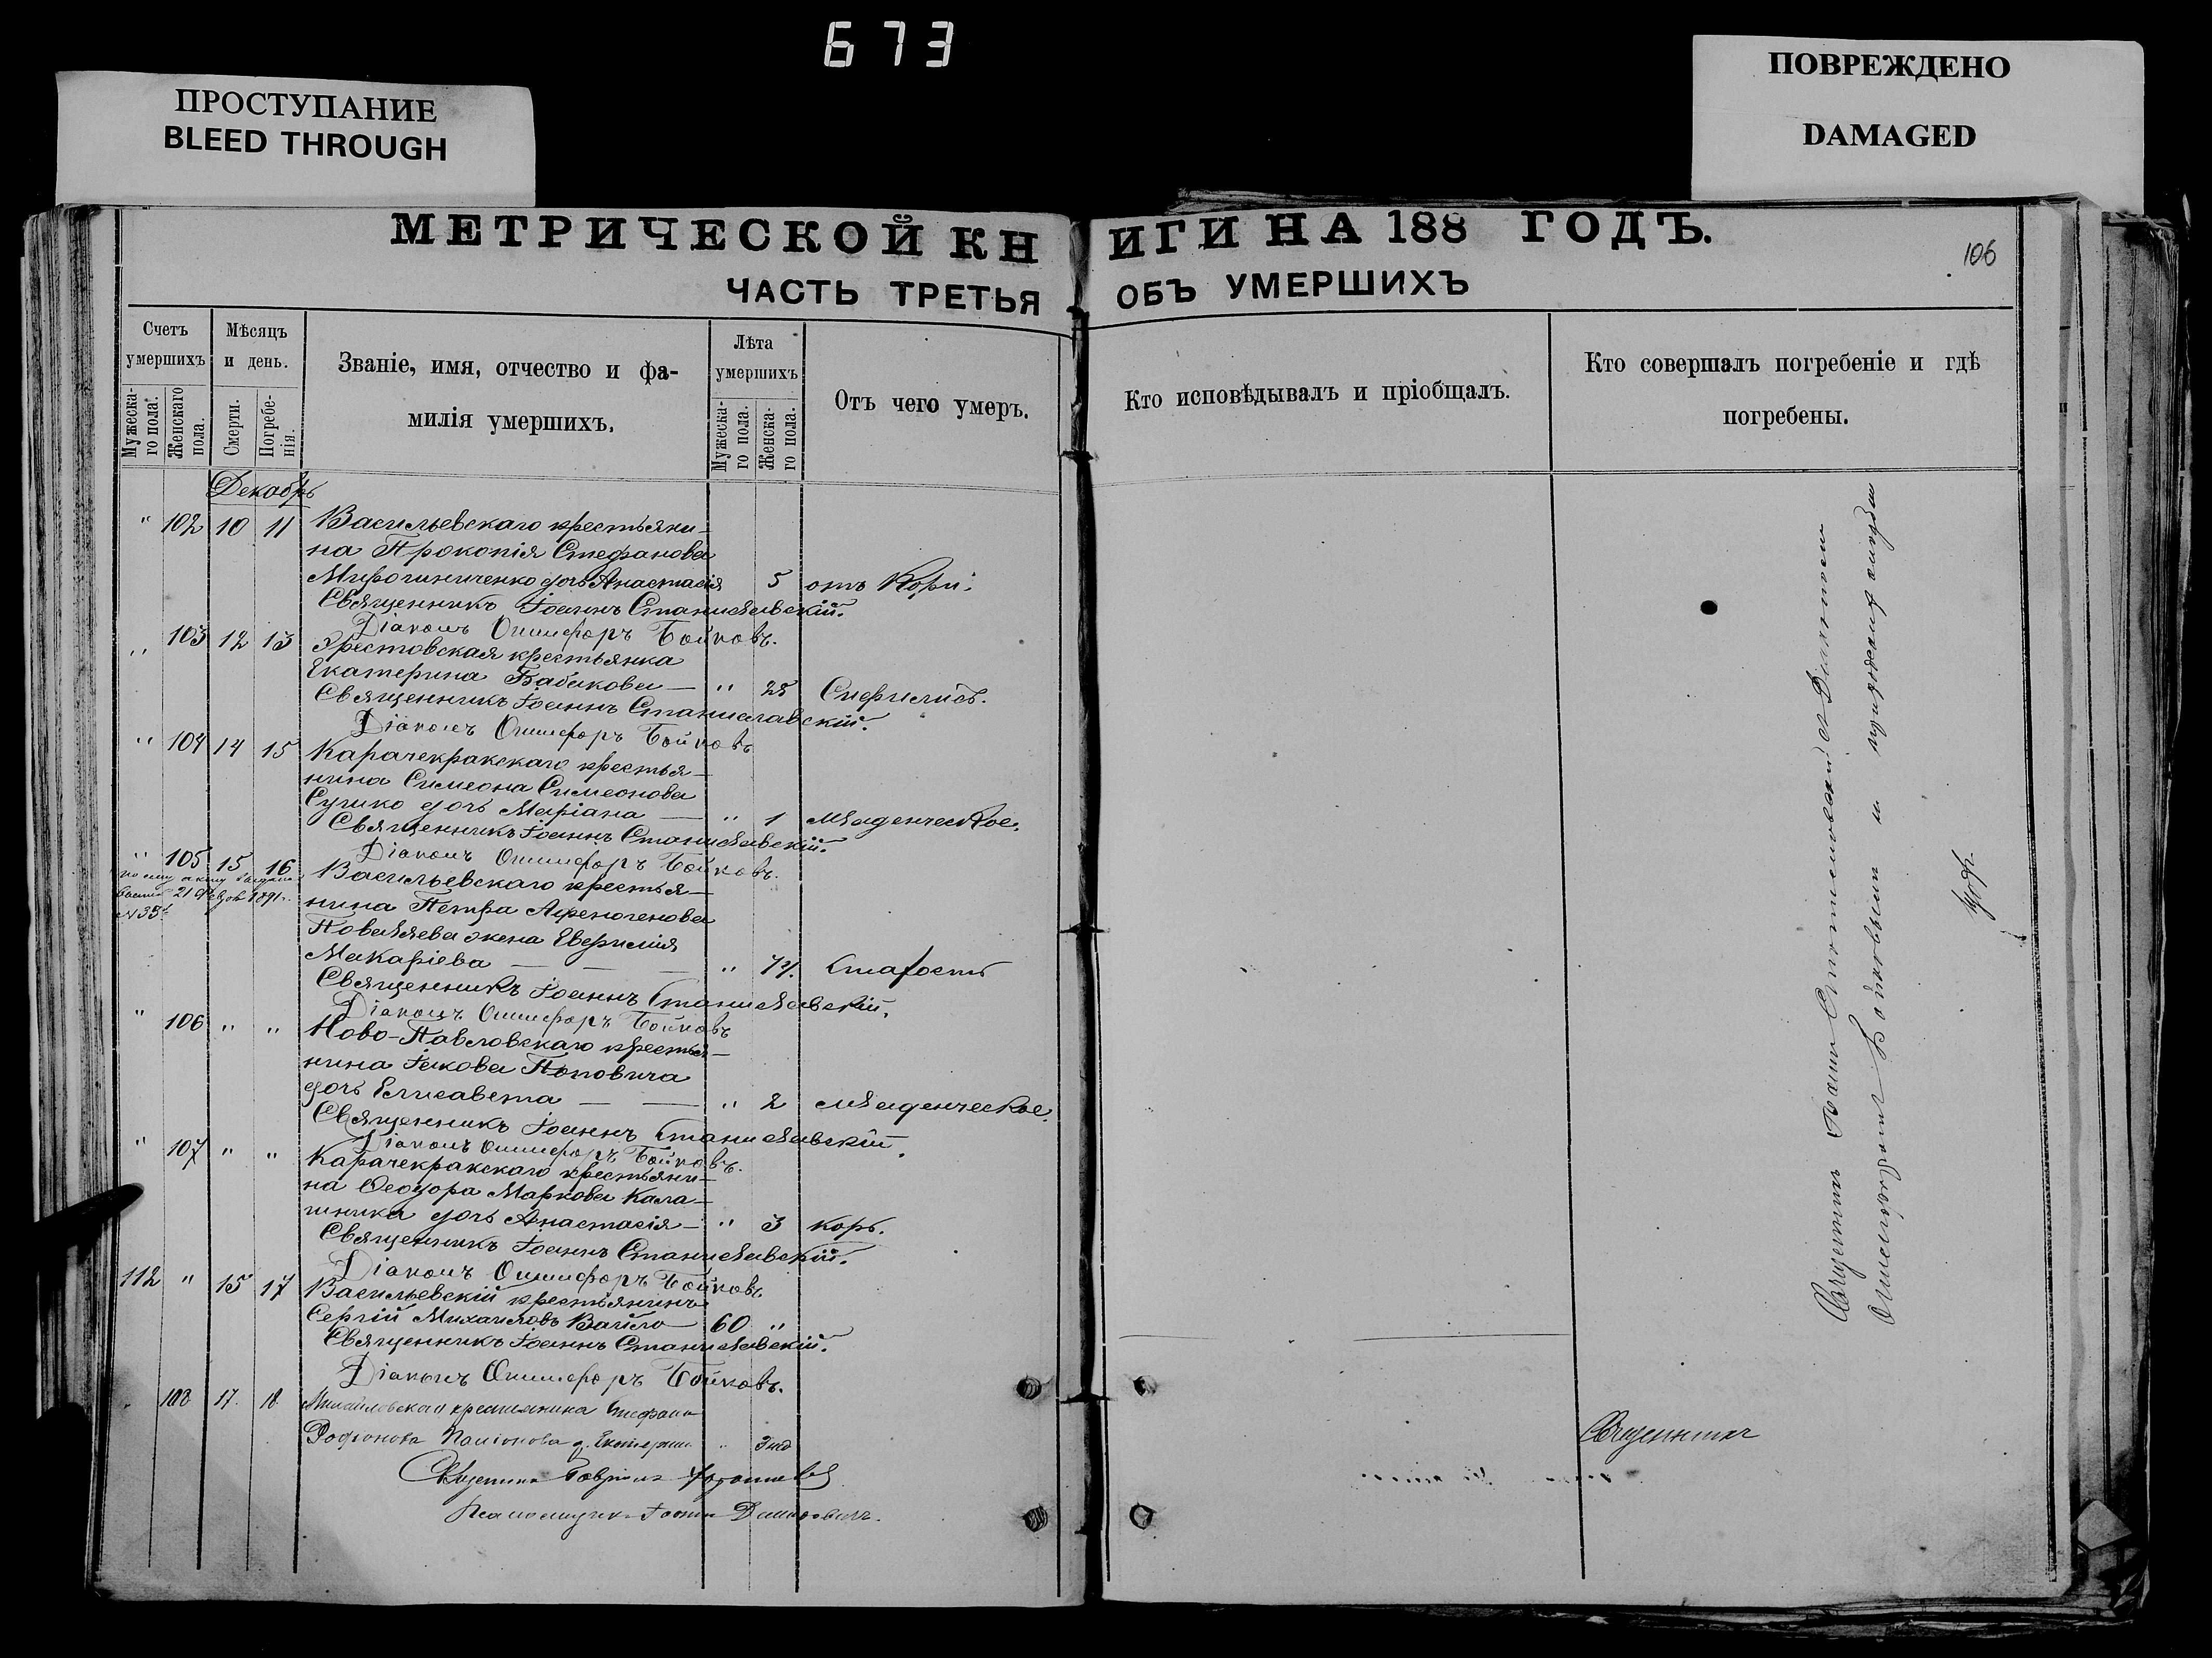 673
ПРОСТУПАНИЕ
BLEED THROUGH
ПОВРЕЖДЕНО
DAMAGED
МЕТРИЧЕСКОЙ КНИГИ НА 188 ГОДЪ.
106
ЧАСТЬ ТРЕТЬЯ ОБЪ УМЕРШИХЪ
Счетъ умершихъ
Мужеска-го пола.
Женскаго пола.
Мѣсяцъ и день.
Смерти.
Погребе-нія.
Званіе, имя, отчество и фа-
милія умершихъ.
Лѣта умершихъ
Мужеска-го пола.
Женска-го пола.
Отъ чего умеръ.
Кто исповѣдывалъ и пріобщалъ.
Кто совершалъ погребеніе и гдѣ
погребены.
Декабрь
" 102 10 11 Васильевскаго крестьяни-
на Прокопія Стефанова
Мирошниченко дочь Анастасія 5 отъ Кори.
Священникъ Іоаннъ Станиславскій.
Діаконъ Онисифоръ Бойковъ.
" 103 12 13 Орестовская крестьянка
Екатерина Бабакова — " 25 Сифилисъ.
Священникъ Іоаннъ Станиславскій.
Діаконъ Онисифоръ Бойковъ
" 104 14 15 Карачекракскаго крестья-
нина Симеона Симеонова
дочь Маріана — " 1 младенческое.
Священникъ Іоаннъ Станиславскій.
Діаконъ Онисифоръ Бойковъ.
" 105 15 16 Васильевскаго крестья-
21 1891 г.
нина Петра Афиногенова
№ 35
Поваляева жена Евфимія
Макаріева — — — " 77. Старость
Священникъ Іоаннъ Станиславскій.
Діаконъ Онисифоръ Бойковъ
" 106 " " Ново-Павловскаго крестья-
нина Іакова Поповича
дочь Елисавета — — " 2 младенческое.
Священникъ Іоаннъ Станиславскій.
Діаконъ Онисифоръ Бойковъ.
" 107 " " Карачекракскаго крестьяни-
на Ѳеодора Маркова Кала-
шника дочь Анастасія — " 3 корь.
Священникъ Іоаннъ Станиславскій.
Діаконъ Онисифоръ Бойковъ.
112 " 15 17 Васильевскій крестьянинъ
Сергій Михаиловъ Вайло 60 "
Священникъ Іоаннъ Станиславскій.
Діаконъ Онисифоръ Бойковъ.
108 17. 18. Михайловскаго крестьянина Стефана
Родіонова д. "
Священникъ Гавріилъ
Псаломщикъ Іоаннъ
Священникъ Іоаннъ Станиславскій съ Діакономъ
Онисифоромъ Бойковымъ и
Священникъ